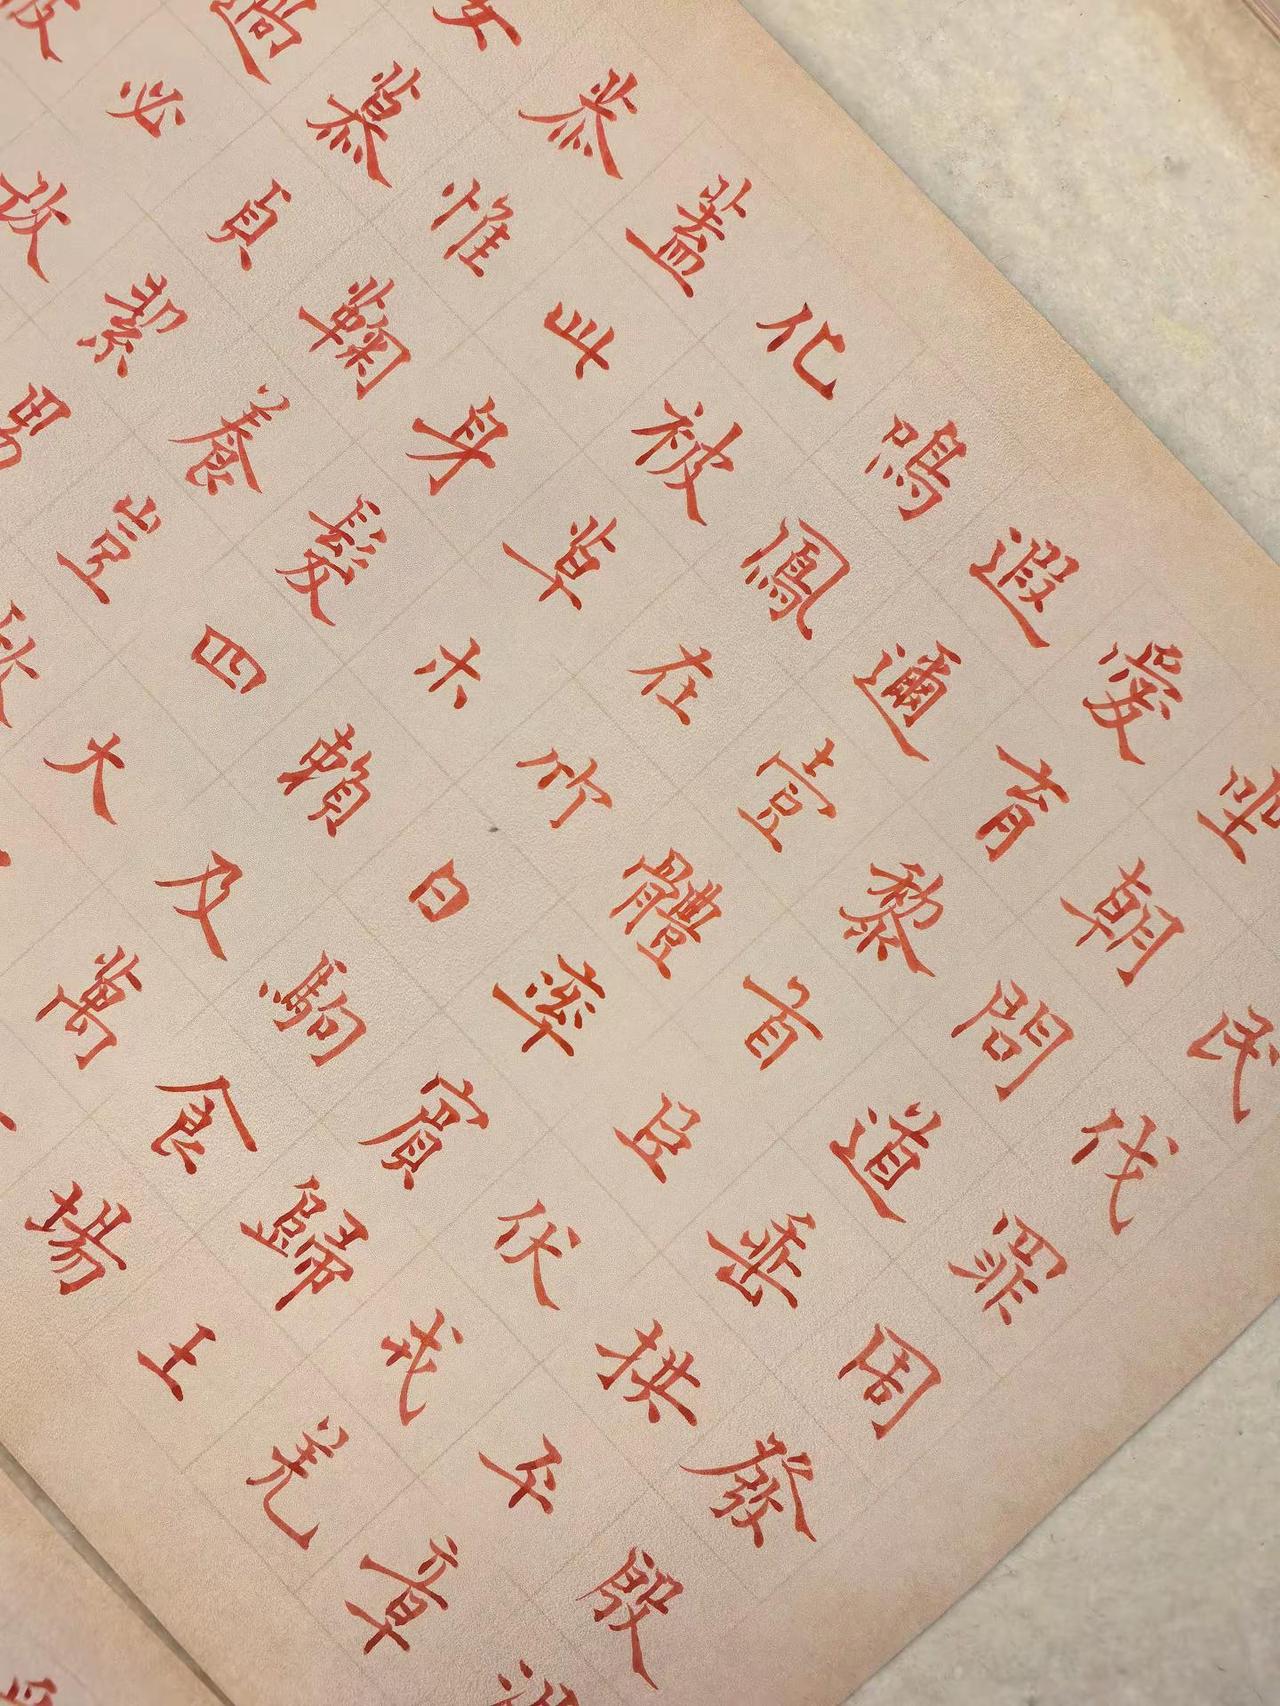 民伐罪周發殷湯
坐朝問道垂拱平章
愛育黎首臣伏戎羌
遐邇壹體率賓歸王
鳴鳳在竹白駒食場
化被草木賴及萬
蓋此身髮四大
恭惟鞠養豈敢
女慕貞絜男
過必改